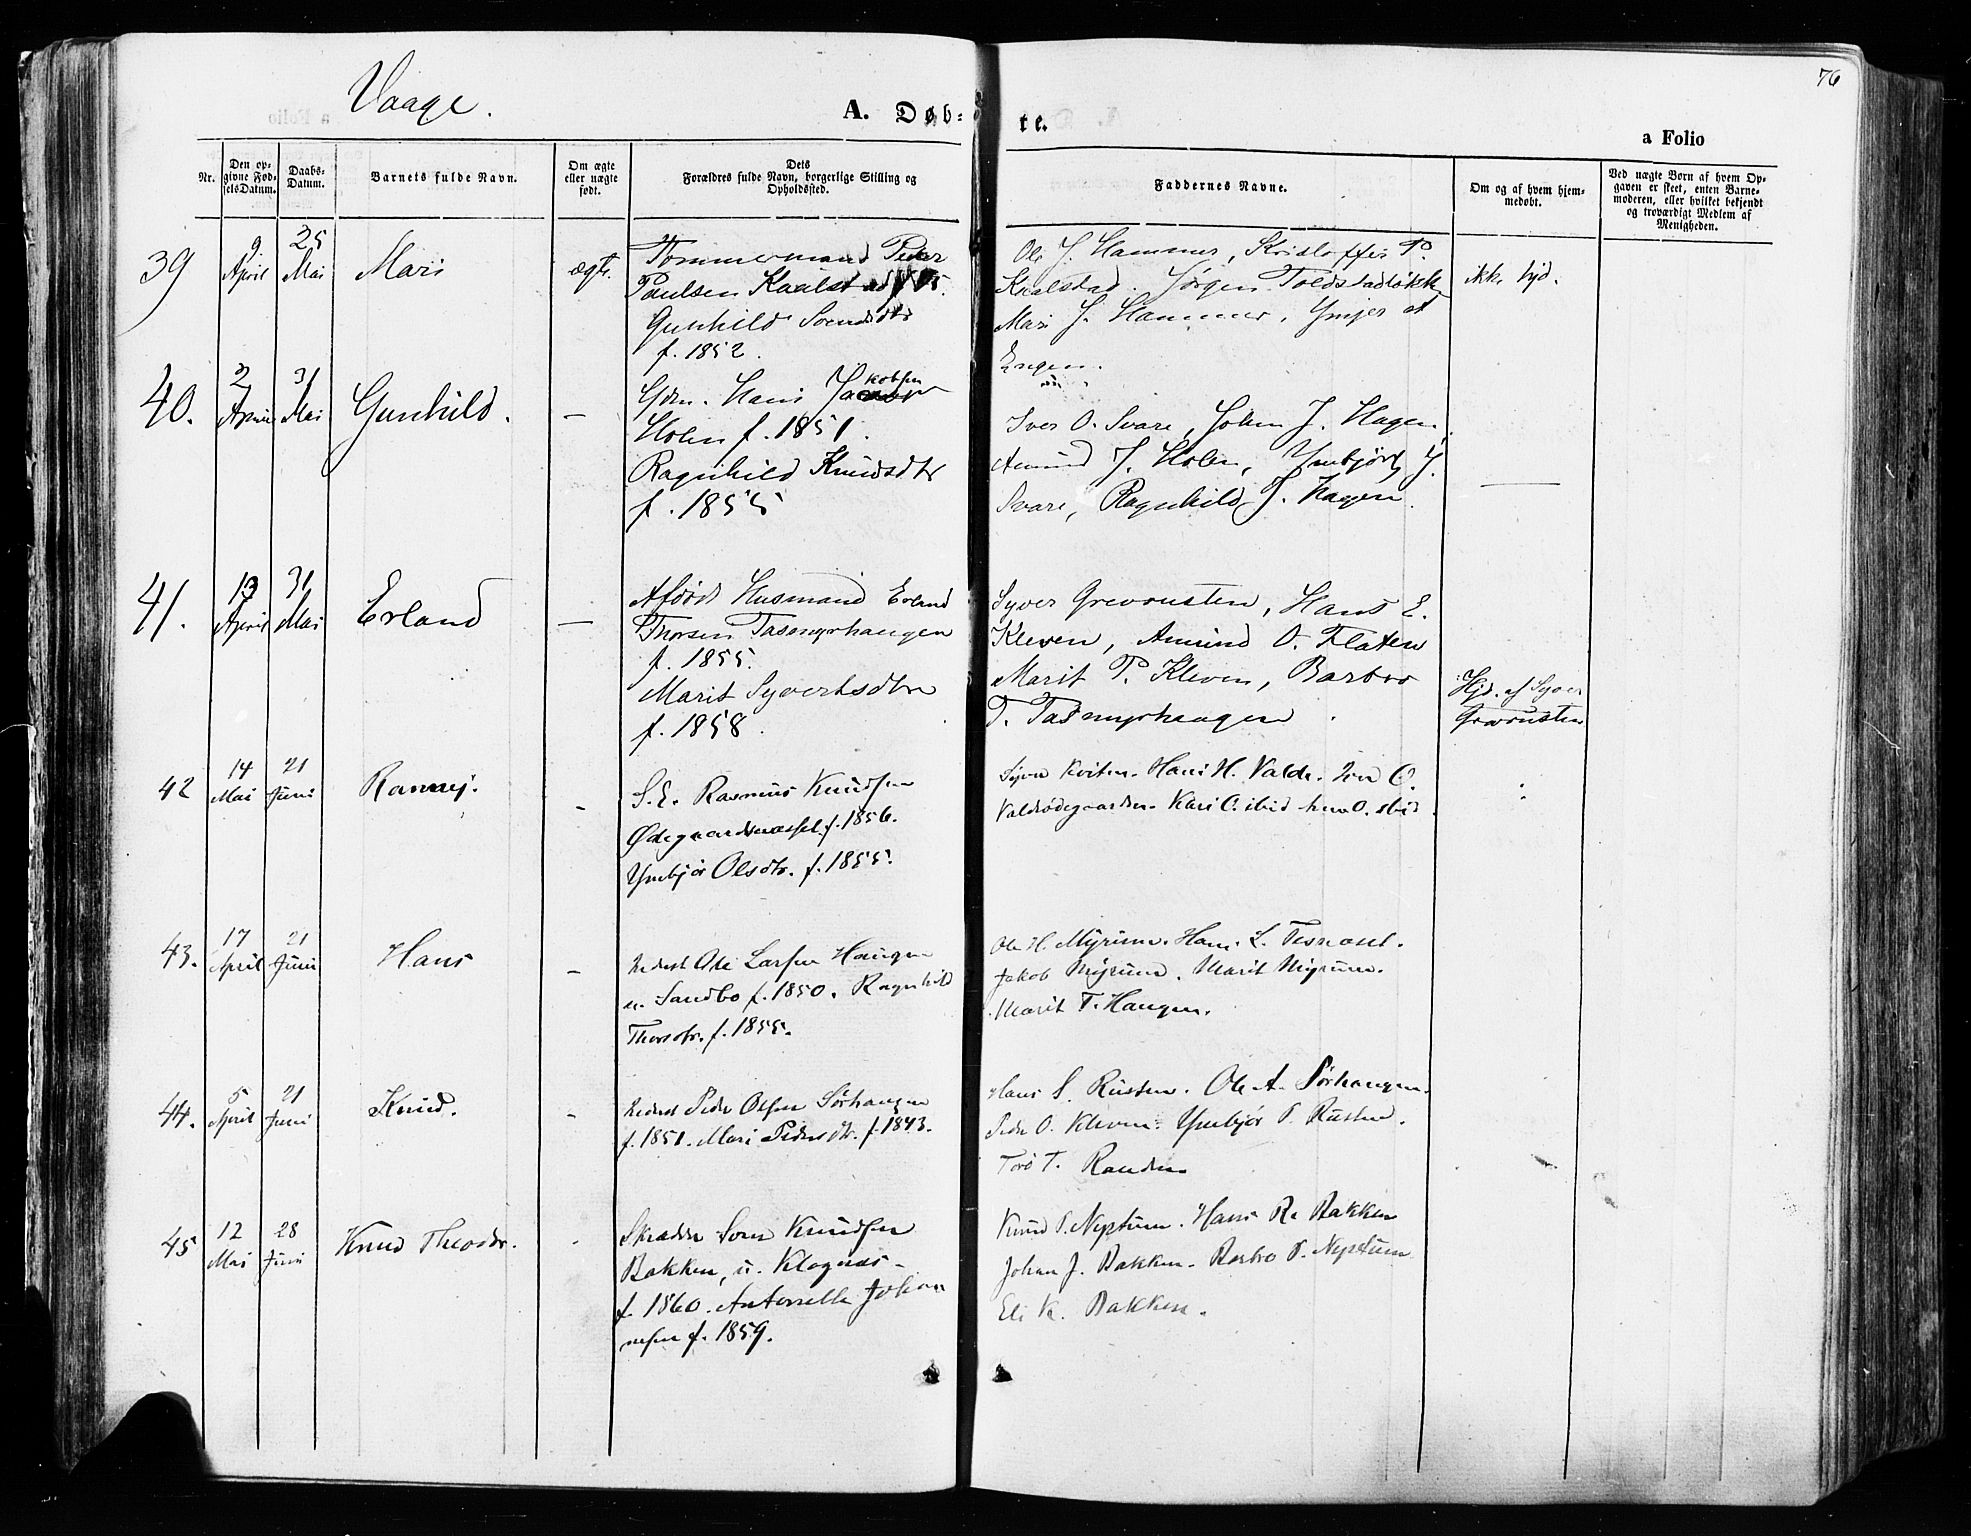 Vaage.
76
A. Døb-
te.
a Folio
Nr.
Den op-
givne Fød-
selsDatum.
Daabs-
Datum.
Barnets fulde Navn.
Om ægte
eller uægte
født.
Dets
Forældres fulde Navn, borgerlige Stilling og
Opholdssted.
Faddernes Navne.
Om og af hvem hjem-
medøbt.
Ved uægte Børn af hvem Op-
gaven er skeet, enten Barne-
moderen, eller hvilket bekjendt
og troværdigt Medlem af
Menigheden.
39
9
April
25
Mai
Mari
ægte
Tømmermand Peder
Paulsen Kaalstad
Gunhild
f. 1852.
Ole J. Hammer, Kristoffer P.
Kaalstad. Jørgen Toldstadløkken
Mari J. Hammer,
Engen.
ikke hjd.
40.
2
April
31
Mai
Gunhild.
—
Gdm. Hans Jakobsen
Holen f. 1851.
Ragnhild Knudsdtr
f. 1855
Iver O. Svare, Johan J. Hagen,
Amund J. Holen, Ymbjørg J.
Svare, Ragnhild J. Hagen.
—
41.
13
April
31
Mai
Erland
—
Afdød Husmand Erland
Thorsen Tasmyrhaugen
f. 1855.
Marit Syvertsdtr
f. 1858.
Syver Grevrusten, Hans E.
Kleven, Amund O. Flaten
Marit P. Kleven, Barbro
T. Tasmyrhaugen.
Hjd. af Syver
Grevrusten
42
14
Mai
21
Juni
Rannej.
-
S.E. Rasmus Knudsen
f. 1856.
Ymbjør Olsdtr. f. 1855.
Syver Kviten. Hans H. Valde. Iver O.
Valdeødegaarden. Kari O. ibid O. ibid.
43.
17
April
21
Juni
Hans
-
Inderst Ole Larsen Haugen
u. Sandbo f. 1850. Ragnhild
Thorsdtr. f. 1855.
Ole H. Myrum. Hans L.
Jakob Myrum. Marit Myrum.
Marit T. Haugen.
44.
5
April
21
Juni
Knud.
-
Inderst Peder Olsen Sørhaugen
f. 1851. Mari Pedersdtr. f. 1843.
Hans S. Rusten. Ole A. Sørhaugen.
Peder O. Kleven. Ymbjør P. Rusten.
Torø T. Randen
45
12
Mai
28
Juni
Knud Theodor.
-
Skrædder Knudsen
Bakken, u. Klognæs
f. 1860. Johan
nesen f. 1859.
Knud P. Neprum. Hans R. Bakken
Johan J. Bakken. Barbro P. Neprum
Eli K. Bakken.